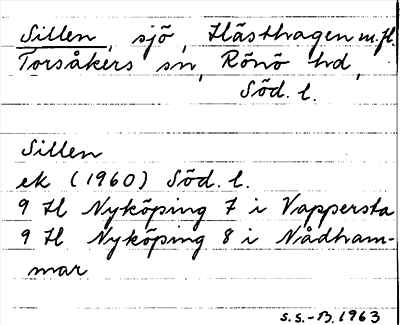 Sillen, sjö, Hästhagen m.fl.
Torsåkers sn, Rönö hd,
Söd. l.
Sillen
ek (1960) Söd. l.
9 H Nyköping 7 i Vappersta
9 H Nyköping 8 i Nådham-
mar
S.S.-B. 1963